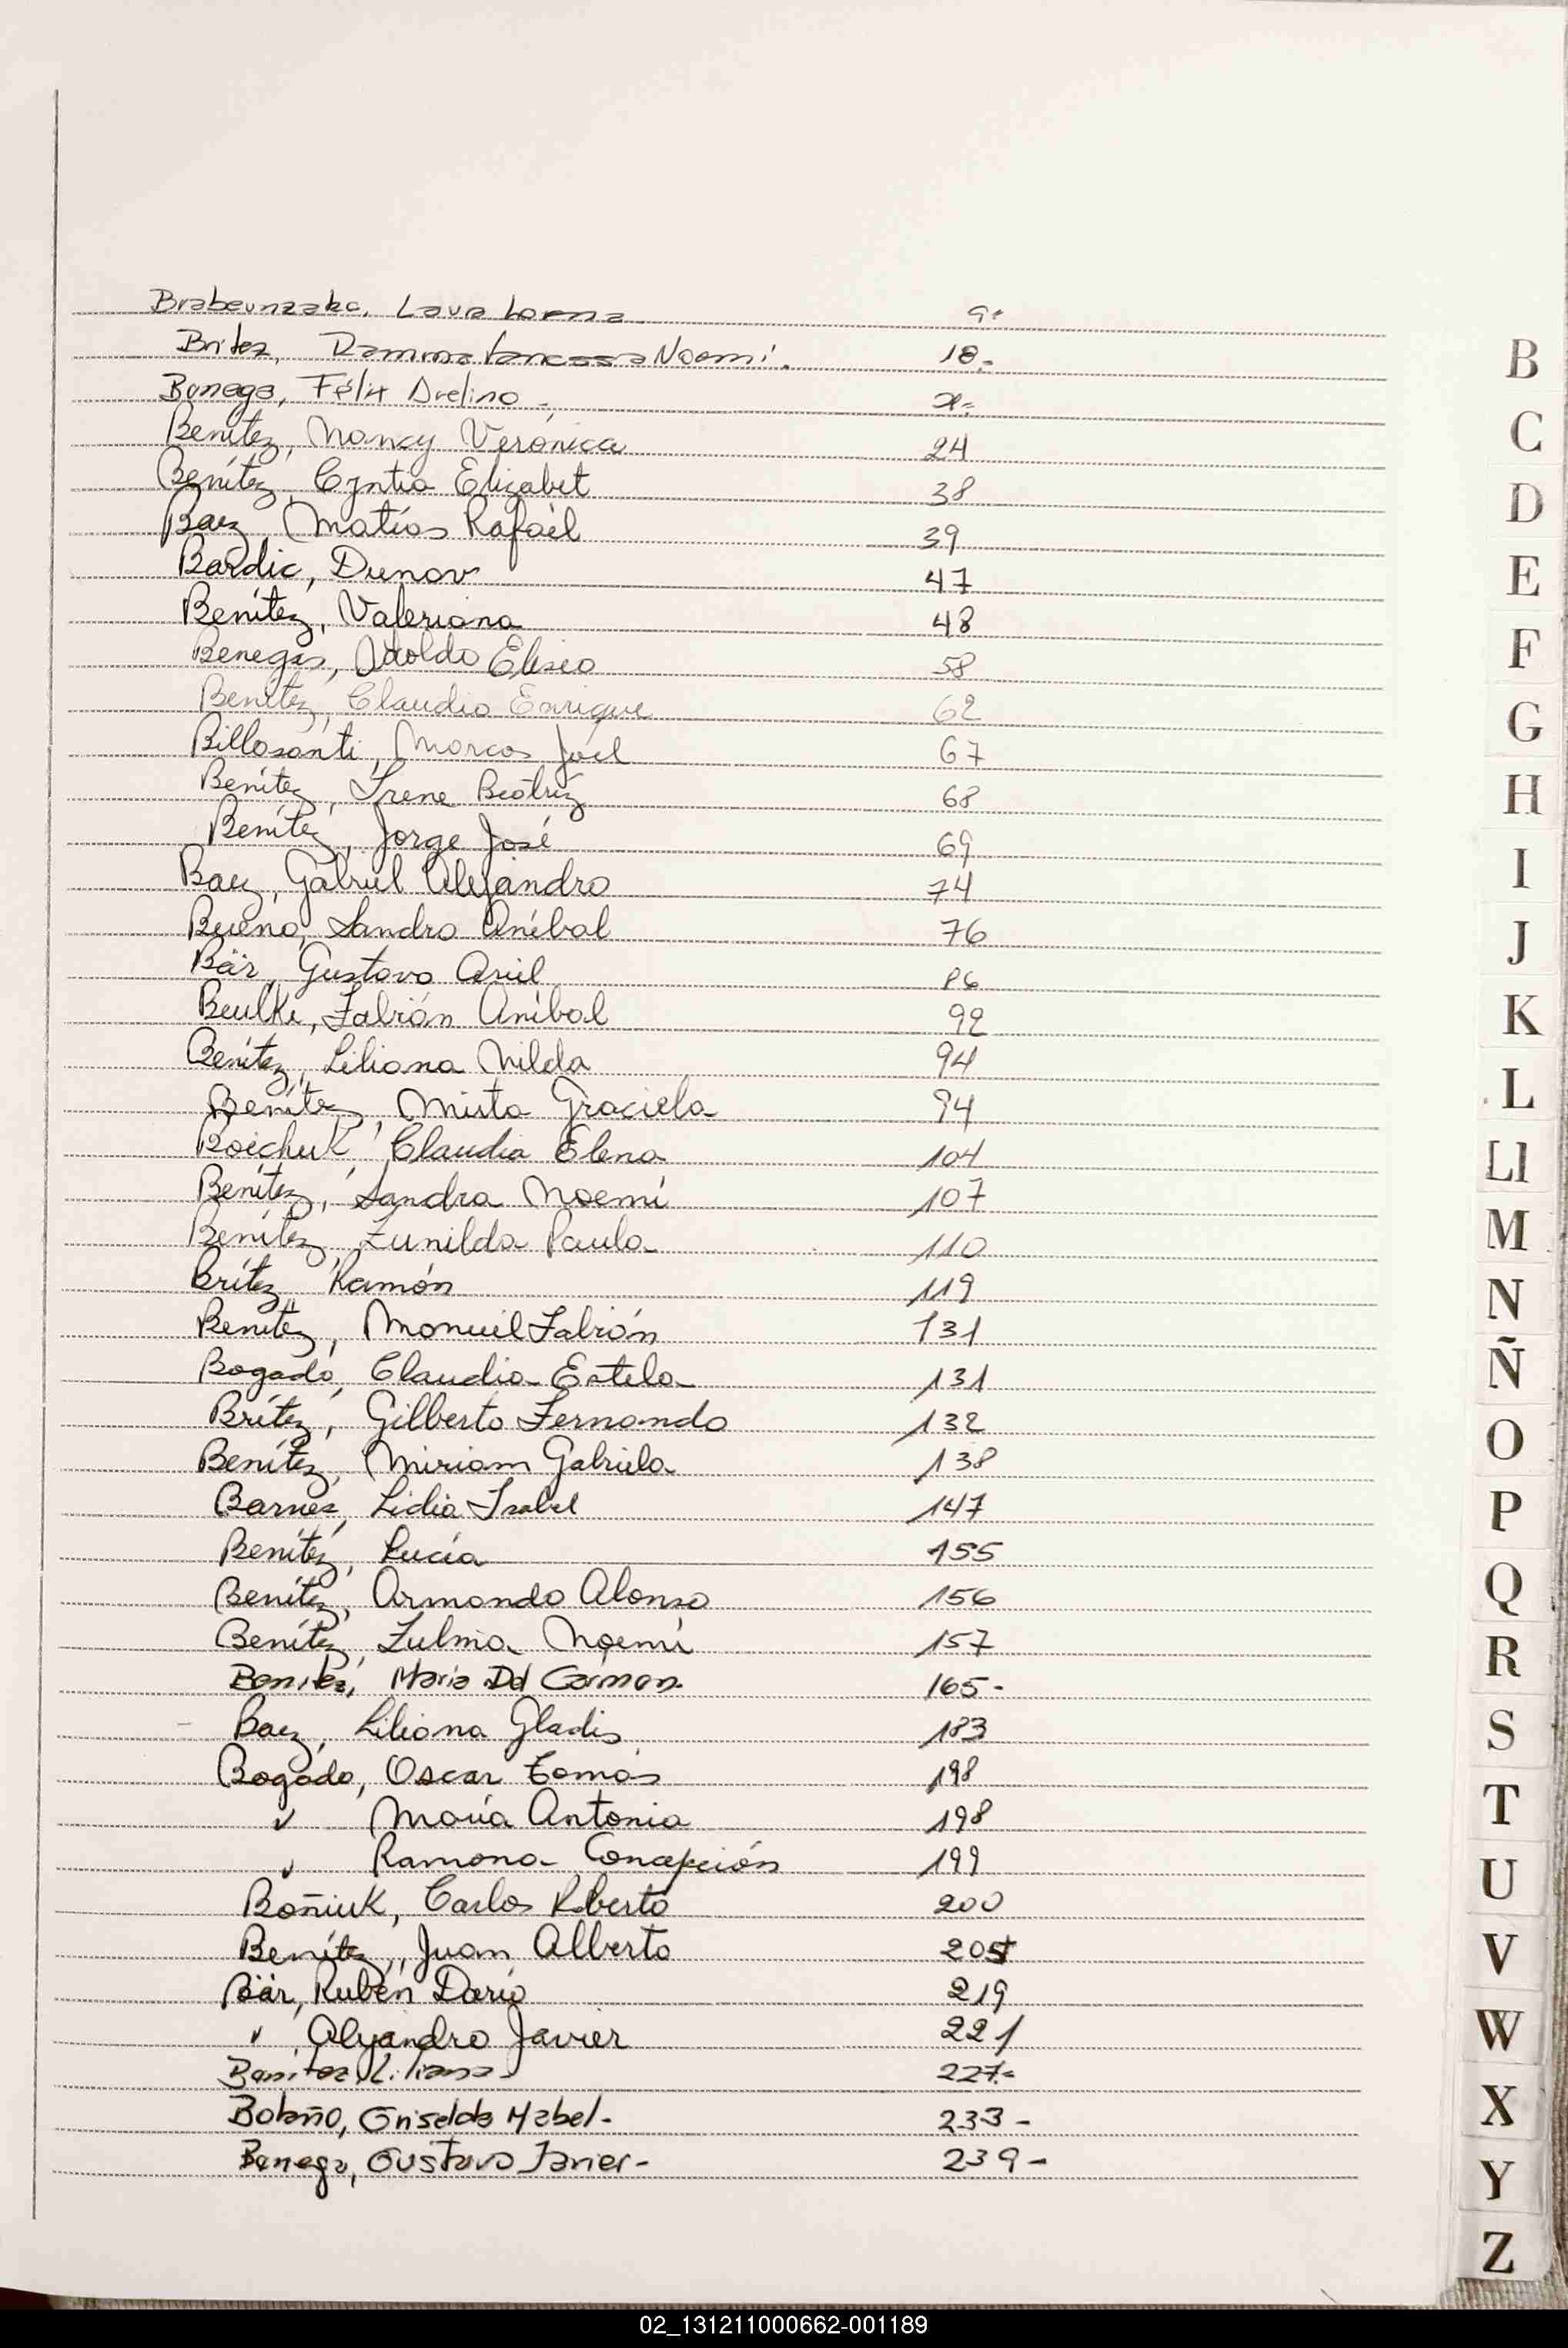 Lava Lorena 9.
Britez, Vanessa Noemí. 18.-
Banega, Félix Avelino.
Benítez, Nancy Verónica 24
Benítez, Cyntia Elizabet 38
Baez, Matías Rafaél 39
Bardic, Dunov 47
Benítez, Valeriana 48
Benegas, Adoldo Eliseo 58
Benítez, Claudio Enrique 62
Billosanti, Marcos Joél 67
Benítez, Irene Beatríz 68
Benítez, Jorge José 69
Baez, Gabriel Alejandro 74
Bueno, Sandro Aníbal 76
Bär, Gustavo Ariel 86
Beulke, Fabián Aníbal 92
Benítez, Liliana Nilda 94
Benítez, Mirta Graciela 94
Boichuk, Claudia Elena 104
Benítez, Sandra Noemí 107
Benítez, Zunilda Paula 110
Brítez, Ramón 119
Benítez, Manuel Fabián 131
Bogado, Claudia Estela 131
Brítez, Gilberto Fernando 132
Benítez, Miriam Gabriela 138
Barnes, Lidia Isabel 147
Benítez, Lucía 155
Benítez, Armando Alonso 156
Benítez, Zulma Noemí 157
Benitez, Maria Del Carmen. 165-
Baez, Liliana Gladis 183
Bogado, Oscar Tomás 198
" María Antonia 198
" Ramona Concepción 199
Boñiuk, Carlos Roberto 200
Benítez, Juan Alberto 205
Bär, Rubén Darío 219
" , Alejandro Javier 221
Benitez, Liliana 227.-
Bolaño, Griselda Mabel- 233-
Banega, Gustavo Javier- 239-
B
C
D
E
F
G
H
I
J
K
L
Ll
M
N
Ñ
O
P
Q
R
S
T
U
V
W
X
Y
Z
02_131211000662-001189